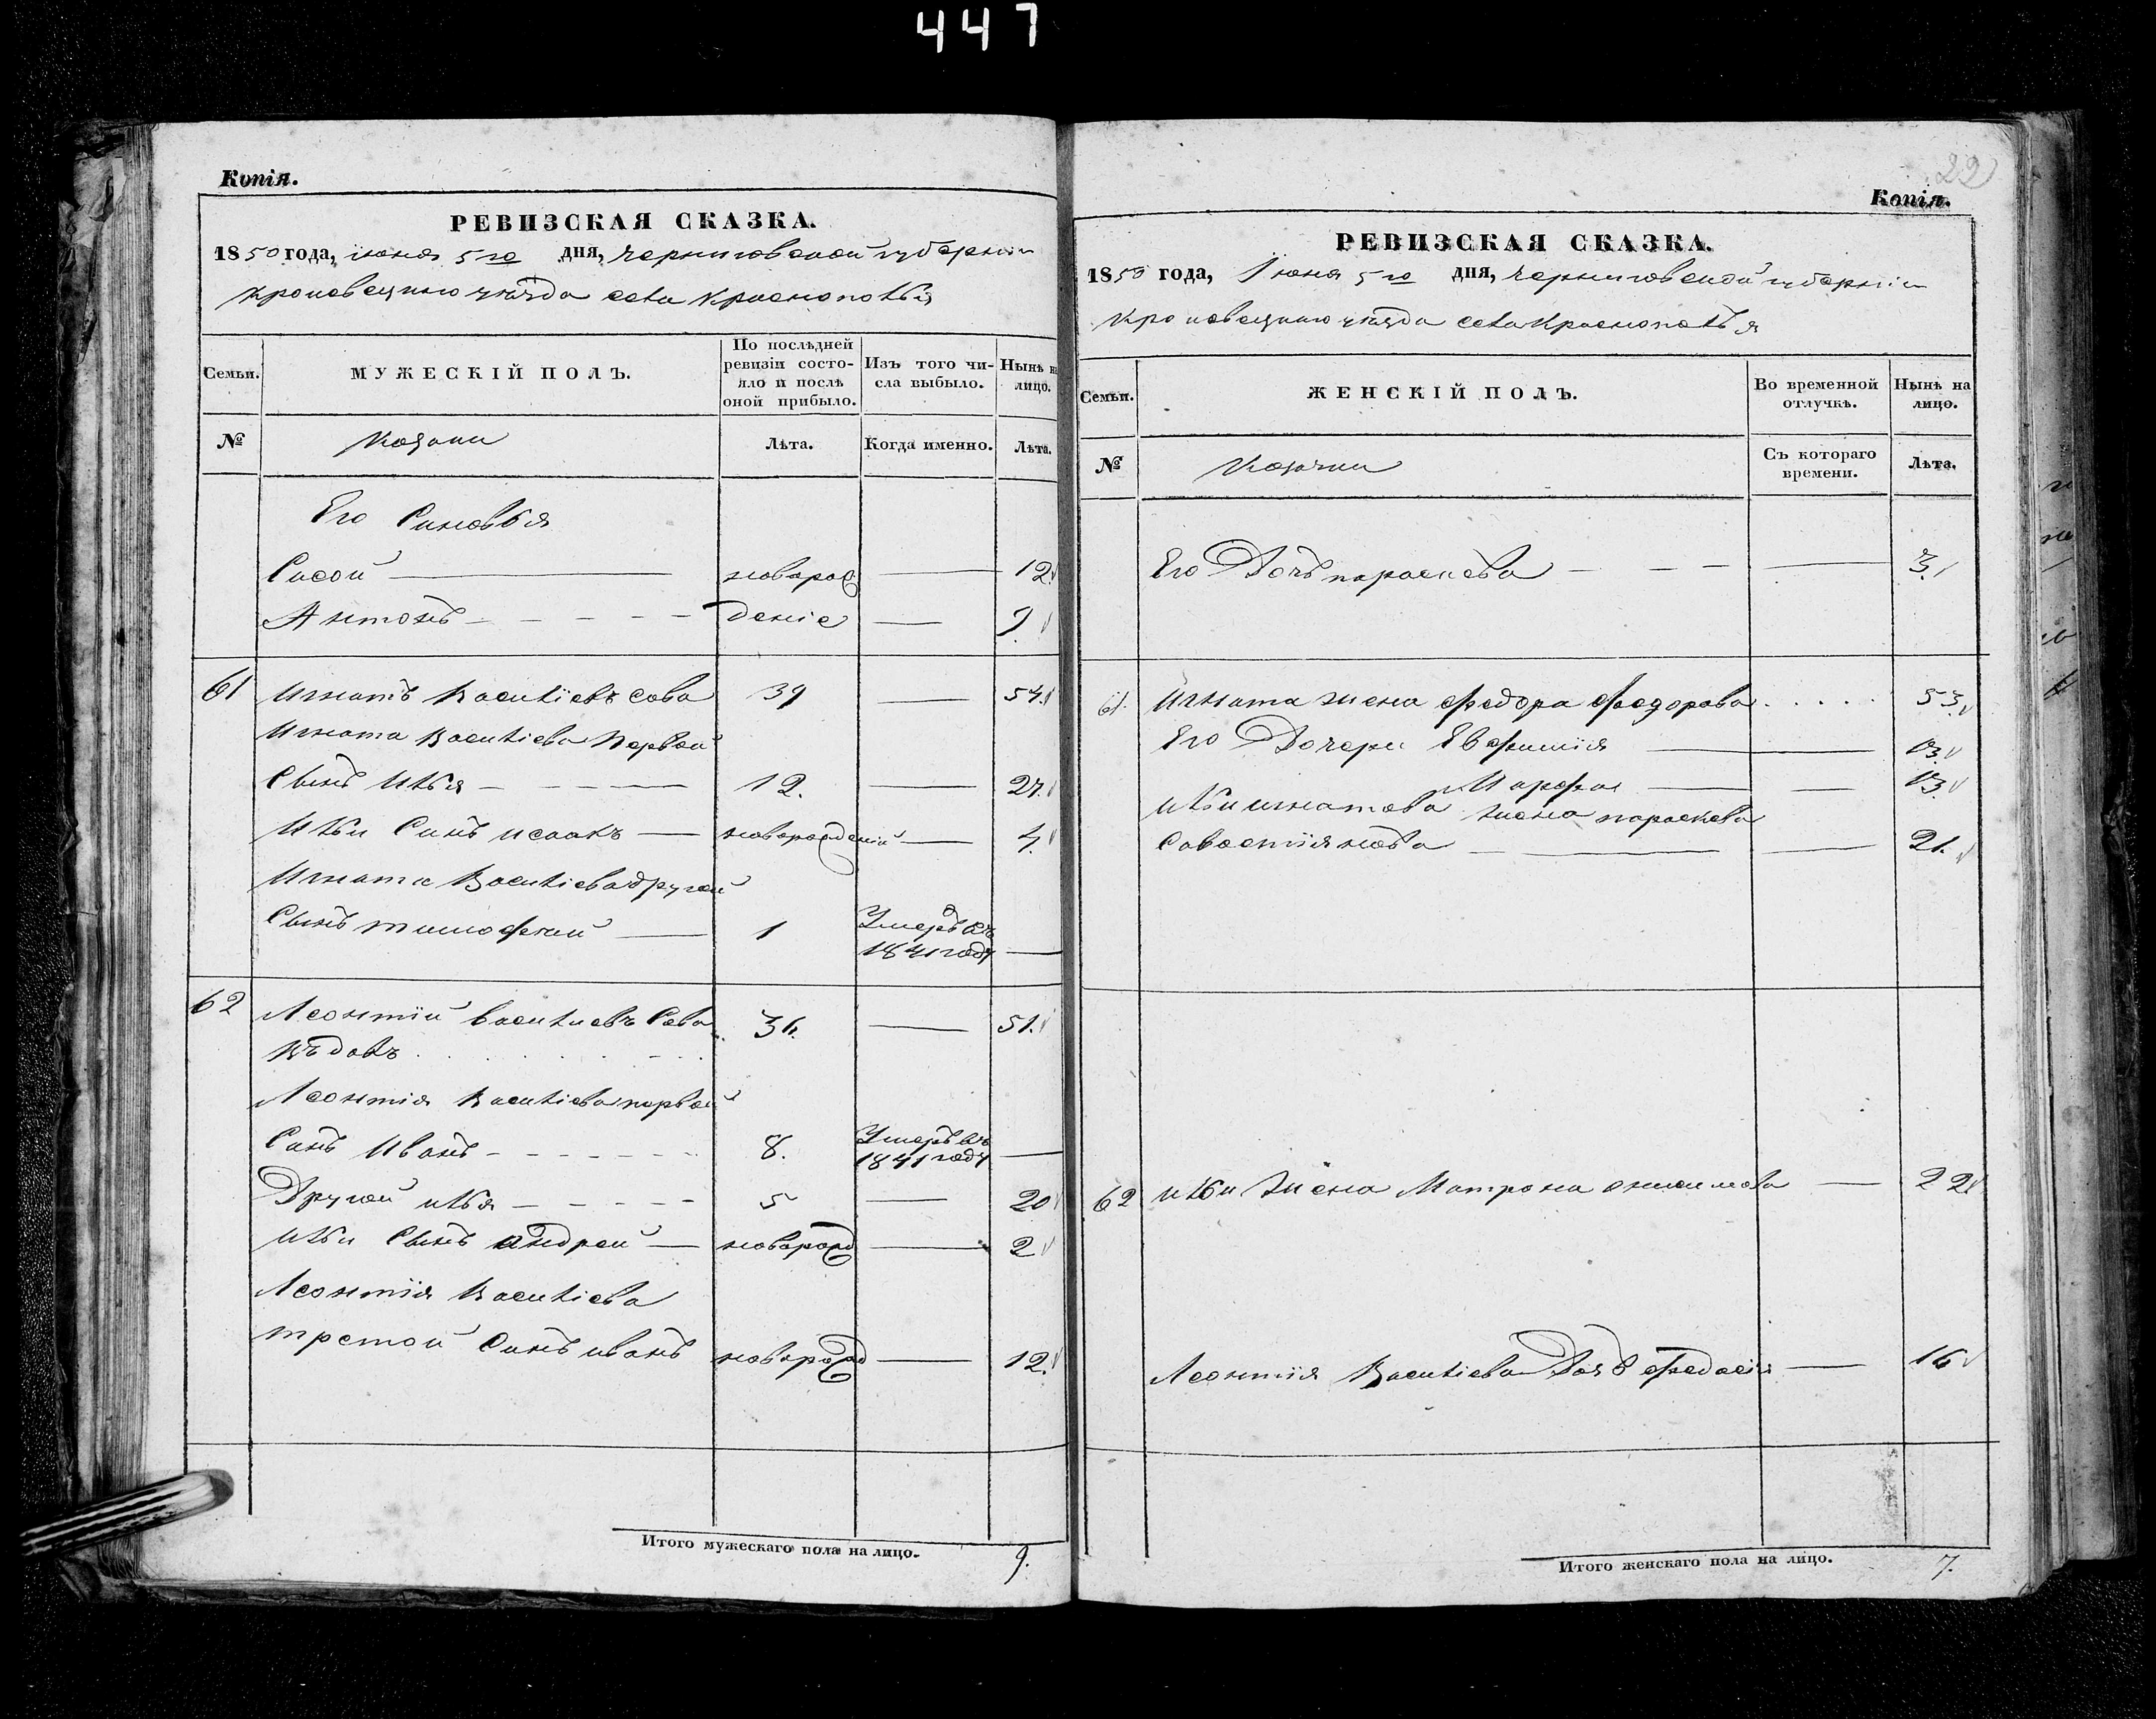 447
Копія.
РЕВИЗСКАЯ СКАЗКА.
1850 года, іюня 5го дня, Черниговской губерніи
Кролевецкаго уѣзда села Краснополья
Семьи.
МУЖЕСКІЙ ПОЛЪ.
По послѣдней ревизіи состо-
яло и послѣ оной прибыло.
Изъ того чи-
сла выбыло.
Нынѣ на лицо.
№
Козаки
Лѣта.
Когда именно.
Лѣта.
Его Синовья
Сисой новорож 12
Антонъ деніе 9
61 Игнатъ Василіевъ Сова 39 54
Игната Василіева Первой
Сынъ Илья 12. 27.
Ильи Синъ Исаакъ новорожденій 4.
Игната Василіева другой
Сынъ Тимофей 1 Умеръ въ
1841 году
62 Леонтій Василиевъ Сова 36. 51.
Вдовъ
Леонтія Василіева первой
Синъ Иванъ 8. Умеръ въ
1841 году
Другой Илья 5 20
Ильи Сынъ Андрей новорожд 2
Леонтія Василіева
третой Синъ Иванъ новорожд 12.
Итого мужескаго пола на лицо. 9.
22
Копія.
РЕВИЗСКАЯ СКАЗКА.
1850 года, Іюня 5го дня, Черниговской губерніи
Кролевецкаго уѣзда села Краснополья
Семьи.
ЖЕНСКІЙ ПОЛЪ.
Во временной отлучкѣ.
Нынѣ на лицо.
№
Козачки
Съ котораго времени.
Лѣта.
Его Дочъ Параскева 3.
61. Игната жена Федора Федорова 53.
Его Дочери Евфимія 13.
Марфа 13.
Ильи Игнатова жена Параскева
Савостіянова 21.
62 Ильи Жена Матрона Онисимова 22
Леонтія Василіева Дочъ Федосія 16
Итого женскаго пола на лицо. 7.